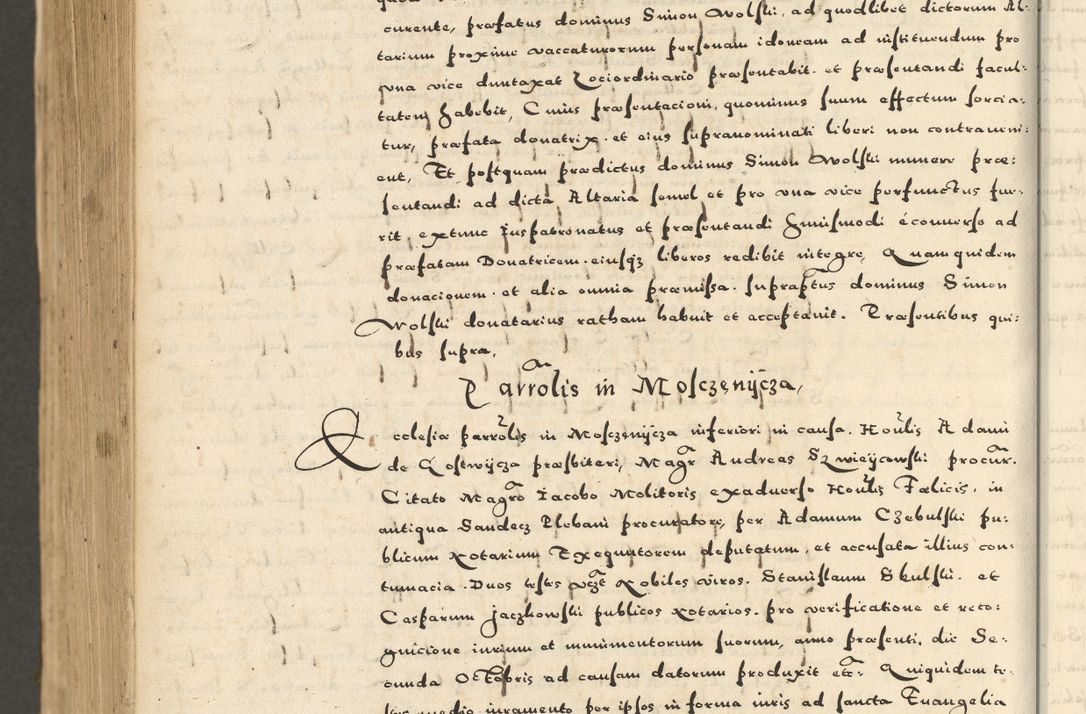 currente, præfatus dominus Simon Wolski, ad quodlibet dictorum Al-
tarium proxime vaccaturorum personam idoneam ad instituendum pro
vna vice duntaxat Lociordinario præsentabit. et præsentandi facul-
tatem habebit, Cuius præsentacioni, quominus suum effectum sorcia-
tur, præfata donatrix. et eius supranominati liberi non contraueni-
ent, Et postquam prædictus dominus Simon Wolski munere præ-
sentandi ad dicta Altaria semel et pro vna vice perfunctus fue-
rit, extunc Juspatronatus et præsentandi huiusmodi éconuerso ad
præfatam Donatricem. eiusq; liberos redibit integre, Quamquidem
donacionem. et alia omnia præmissa. supraptus dominus Simon
Wolski donatarius ratham habuit et acceptauit. Præsentibus qui-
bus supra,
Parrolis in Mosczenijcza,
Ecclesia parrolis in Mosczenijcza inferiori in causa. Honlis Adami
de Gostwijcza præsbiteri, Magr Andreas Szwieijcowski procur.
Citato Magro Jacobo Molitoris exaduerso Honlis Fælicis, in
antiqua Sandecz Plebani procuratore, per Adamum Czebulski pu-
blicum Notarium Exequutorem deputatum. et accusata illius con-
tumacia. Duos testes vczt Nobiles viros. Stanislaum Skulski. et
Casparum Jaczkowski publicos Notarios. pro verificatione et reco-
gnicione iurium et munimentorum suorum, anno præsenti, die Se-
cunda Octobris ad causam datorum produxit etc. Quiquidem te-
stes medio iuramento per ipsos in forma iuris ad sancta Euangelia